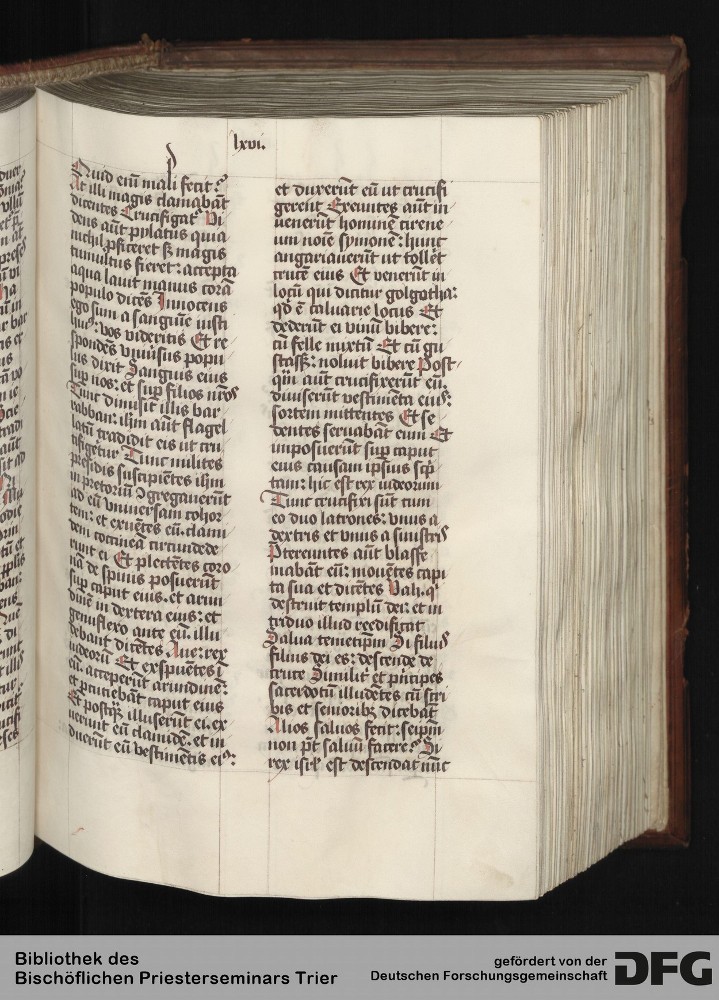 lxvi.
Quid em̄ mali fecit?
At illi magis clamabāt
dicentes Crucifigat᷑ Vi
dens aūt pylatus quia
nichil ꝓficeret sꝫ magis
tumultus fieret: accepta
aqua lauit manus corā
populo dicēs Innocens
ego sum a sanguine iusti
huiꝰ: vos videritis Et re
spondēs vniūsus popu
lus dixit Sanguis eius
suꝑ nos: et suꝑ filios nr̄os
Tunc dimisit illis bar
rabban: ihm̄ aūt flagel
latū tradidit eis ut cru
cifigetur Tunc milites
presidis suscipientes ihm̄
in pretoriū ꝯgregauerūt
ad eū vniuersam cohor
tem: et exuētes eū. clami
dem coccineā circumdede
runt ei Et plectētes coro
nā de spinis posuerūt
suꝑ caput eius. et arun
dinē in dextera eius: et
genuflexo ante eū. illu
debant dicētes Aue: rex
iudeorū Et exspuētes ī
eū. acceperūt arundinē:
et ꝑcutiebāt caput eius
Et postqꝫ illuserūt ei. ex
uerunt eū clamidē. et in
duerūt eū vestimētis eiꝰ:
et duxerūt eū ut crucifi
gerent Exeuntes aūt in
uenerūt hominē cirene
um noīe symonē: hunc
angariauerūt ut tollēt
crucē eius Et venerūt in
locū qui dicitur golgotha:
qd̄ ē caluarie locus Et
dederūt ei vinū bibere:
cū felle mixtū Et cū gu
stassꝫ: noluit bibere Post-
q̄ aūt crucifixerūt eū.
diuiserūt vestimēta eiꝰ:
sortem mittentes Et se
dentes seruabāt eum Et
imposuerūt suꝑ caput
eius causam ipsius scp̄
tam: hic est rex iudeorum
Tunc crucifixi sūt cum
eo duo latrones: vnus a
dextris et vnus a sinistris
Pretereuntes aūt blasfe
mabāt eū: mouētes capi
ta sua et dicētes Vah. qͥ
destruit templū dei: et in
triduo illud reedificat
Salua temetip̄m Si filiꝰ
filius dei es: descende de
cruce Similit᷑ et pͥncipes
sacerdotū illudētes cū scri
bis et senioribꝫ dicebāt
Alios saluos fecit: seip̄m
non pt̄ saluū facere? Si
rex isrl̄ est descendat nūc
Bibliothek des
Bischöflichen Priesterseminars Trier
gefördert von der
Deutschen Forschungsgemeinschaft
DFG